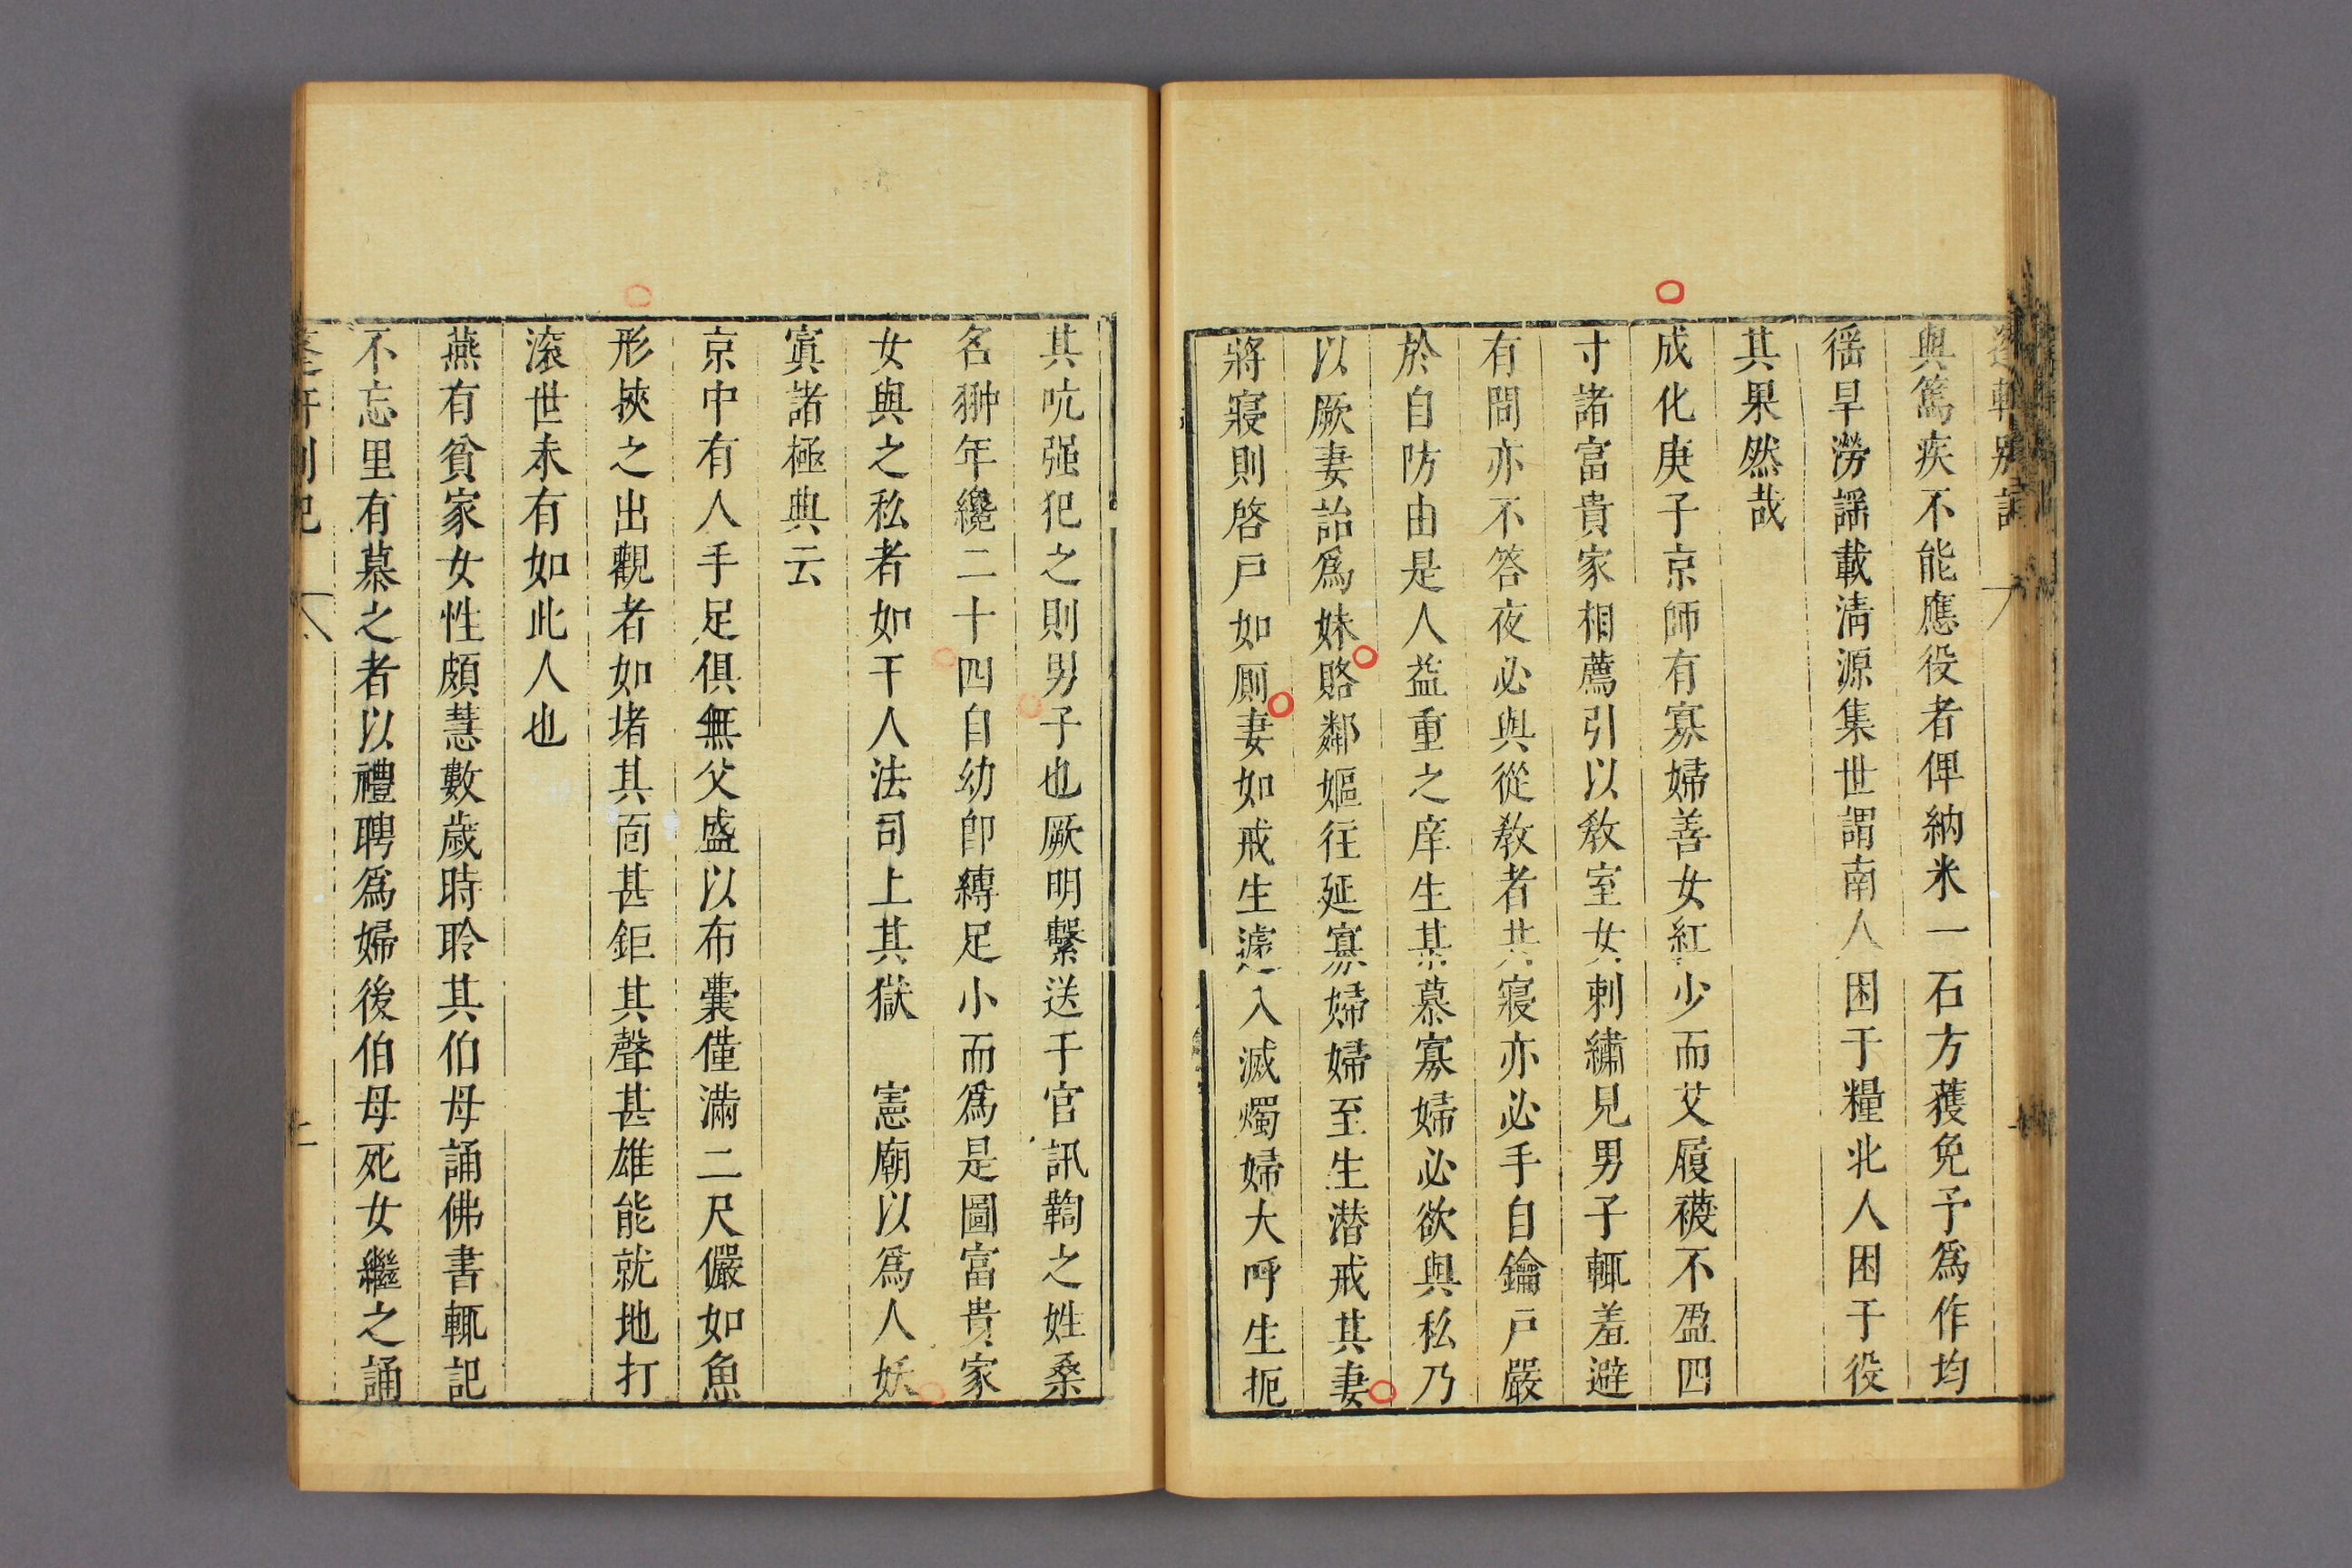 蓬軒別記
與篤疾不能應役者俾納米一石方蒦免予爲作均
徭旱澇謡載清源集世謂南人困于糧北人困于役
其果然哉
成化庚子京師有寡婦善女紅少而艾履襪不盈四
寸諸富貴家相薦引以敎室女刺繡見男子輒羞避
有問亦不答夜必與從敎者共寢亦必手自鑰戸嚴
於自防由是人益重之庠生某慕寡婦必欲與私乃
以厥妻詒爲妹賂鄰嫗往延寡婦婦至生潛戒其妻
將寢則啓戸如厠妻如戒生遽入滅燭婦大呼生扼
其吭强犯之則男子也厥明繫送于官訊鞫之姓桑
名翀年纔二十四自幼卽縛足小而爲是圖富貴家
女與之私者如干人法司上其獄　憲廟以爲人妖
寘諸極典云
京中有人手足俱無父盛以布囊僅滿二尺儼如魚
形挾之出觀者如堵其面甚鉅其聲甚雄能就地打
滚世未有如此人也
燕有貧家女性頗慧數歲時聆其伯母誦佛書輒記
不忘里有慕之者以禮聘爲婦後伯母死女繼之誦